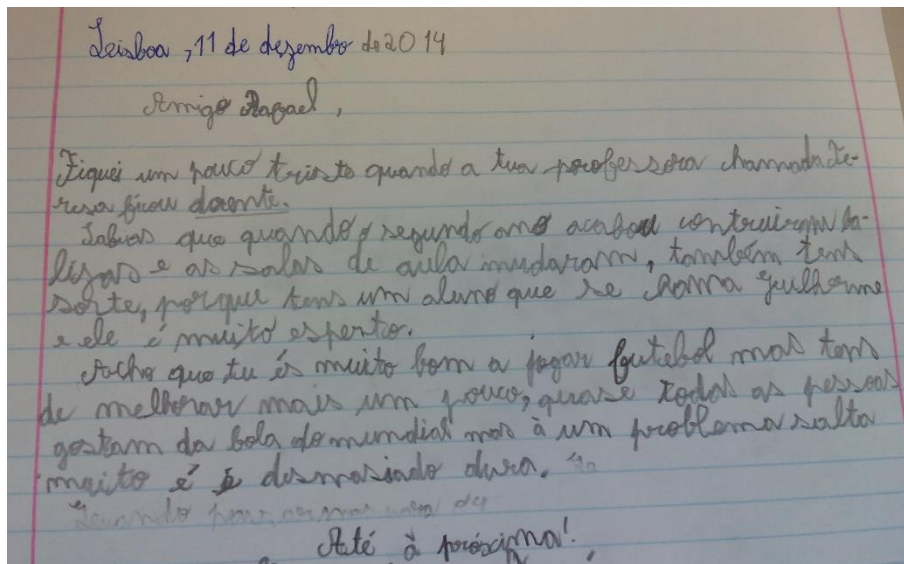 Leisboa, 11 de dezembro de 2014
Amigo Rafael,
Fiquei um pouco triste quando a tua professora chamada Te-
resa ficou doente.
Sabias que quando o segundo ano acabou contruiram ba-
lizas e as salas de aula mudaram, também tens
sorte, porque tens um aluno que se chama Guilherme
e ele é muito esperto.
Acho que tu és muito bom a jogar futebol mas tens
de melhorar mais um pouco, quase todas as pessoas
gostam da bola do mundial mas à um problema salta
muito é desmasiado dura.
Até à próxima!